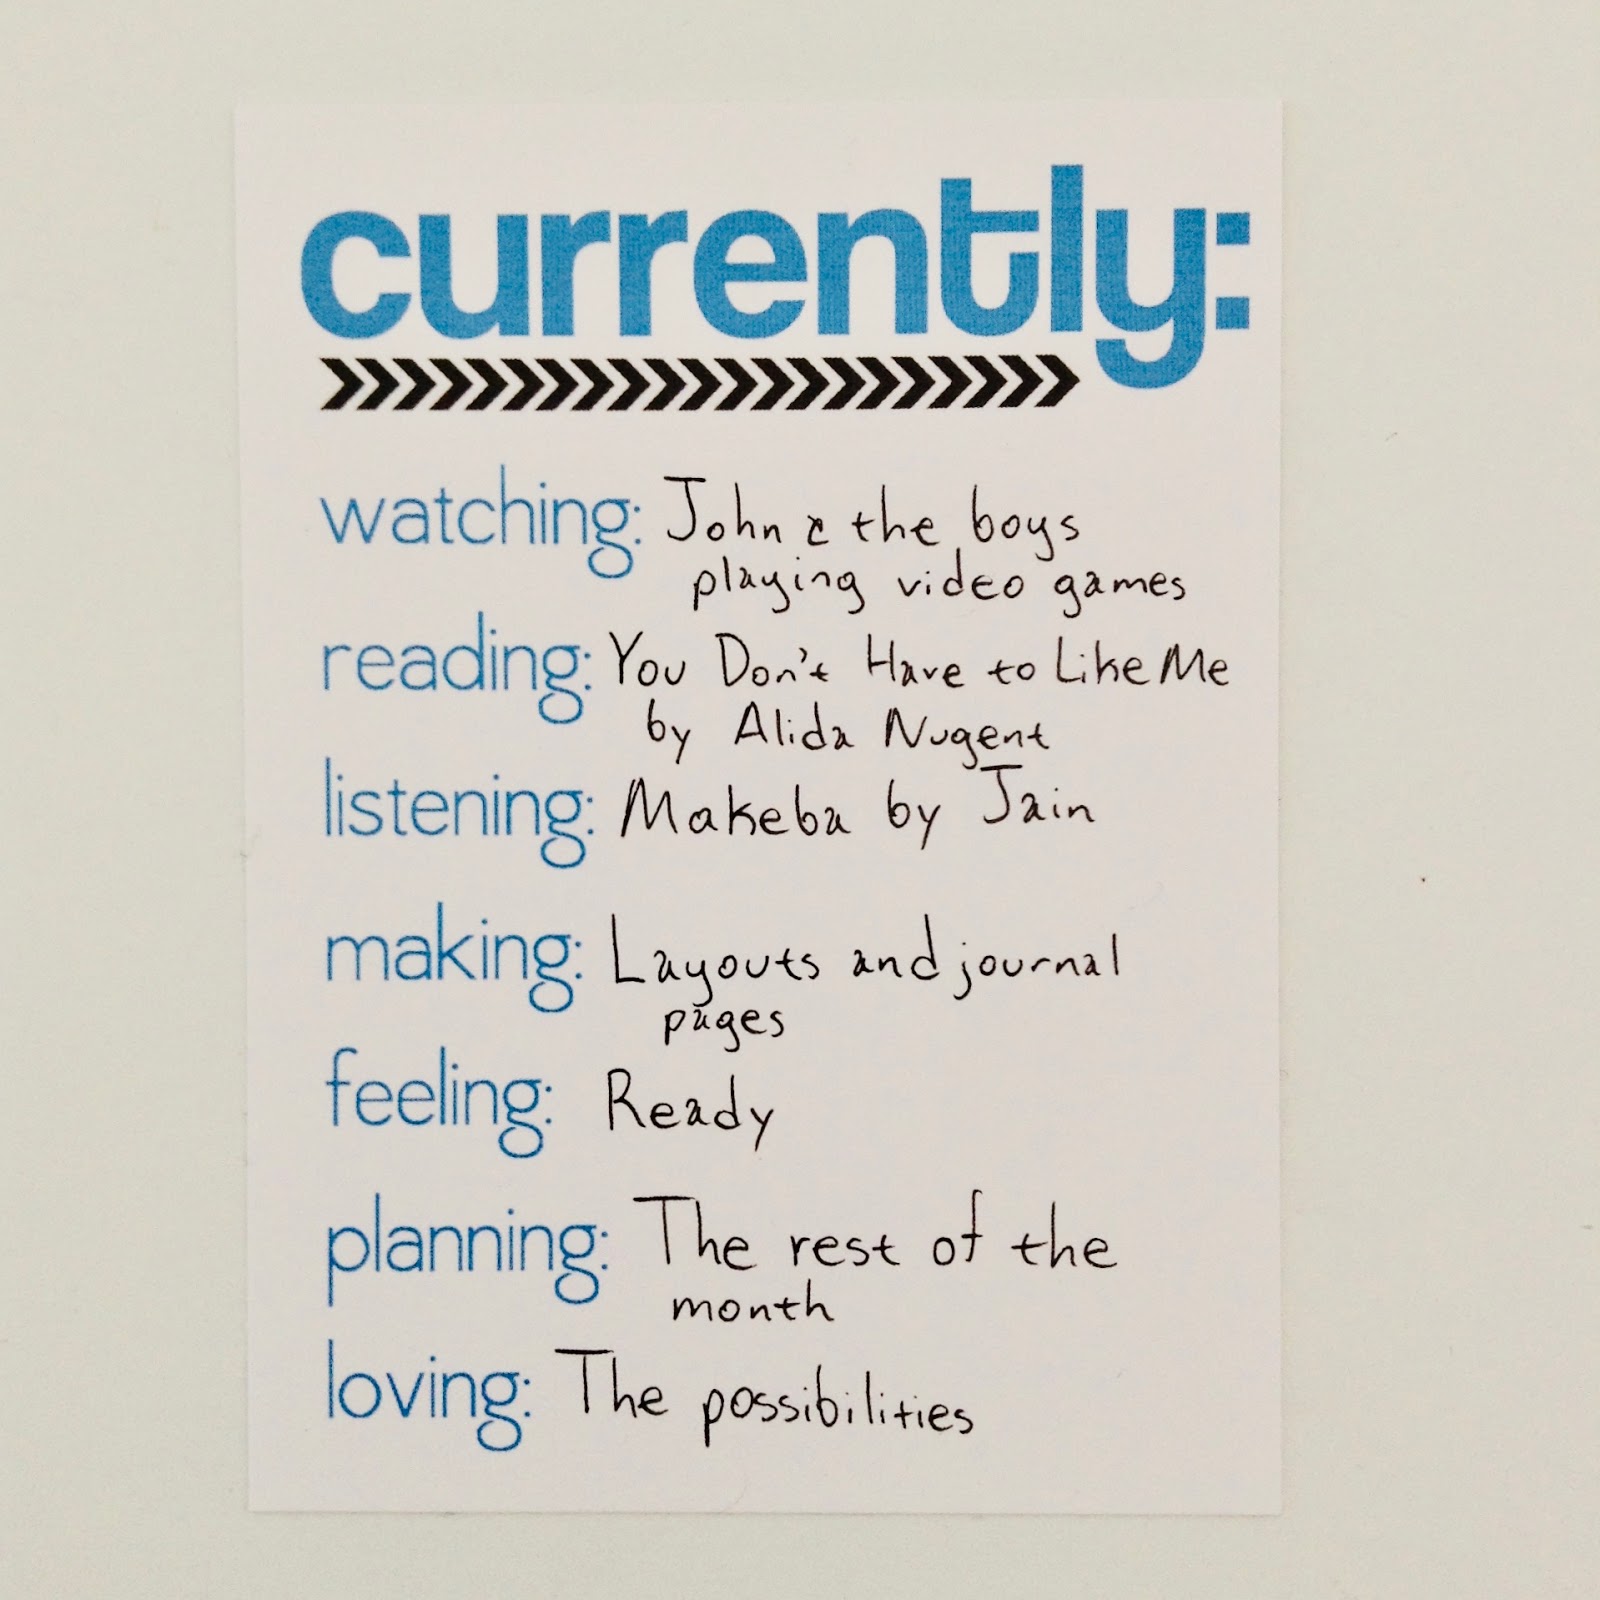 currently:
watching: John & the boys
playing video games
reading: You Don't Have to Like Me
by Alida Nugent
listening: Makeba by Jain
making: Layouts and journal
pages
feeling: Ready
planning: The rest of the
month
loving: The possibilities